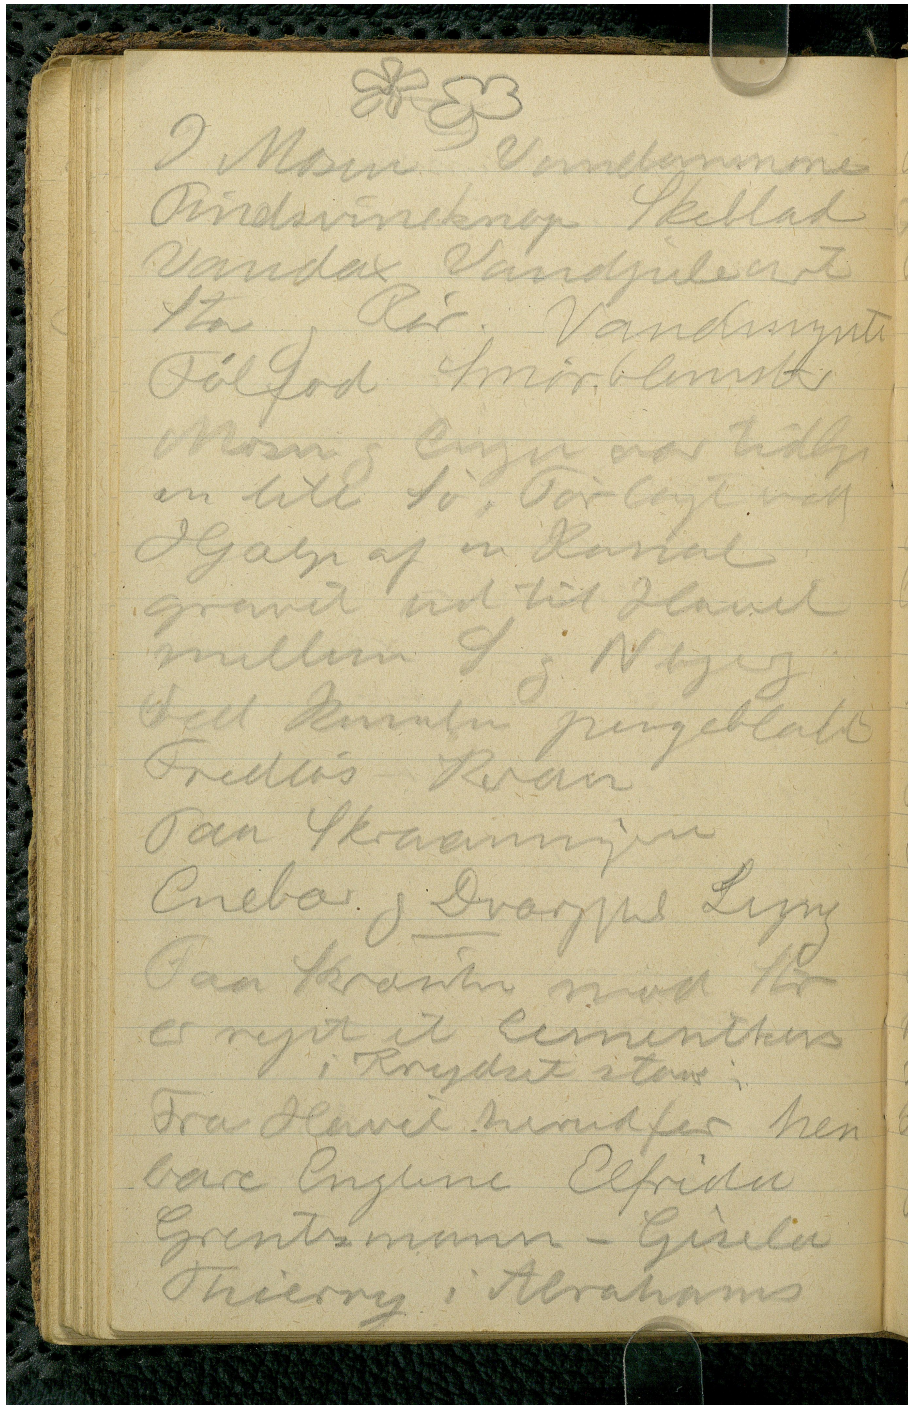 I Mosen Vandammone
Pindsvineknop Skeblad
Vandax Vandjuleurt
Star og Rør. Vandmynte
Følfod Smørblomster
Mosen og Engen var tidlig
en lille Sø. Tørlagt ved
Hjælp af en Kanal
gravet ud til Havet
mellem S og N
Ved Kanalen pengebladet
Fredløs - Kvan
Paa Skraaningen
Enebær og Dværgpil Lyng
Paa Skrænten mod
er rejst et Cementkors
i Krydset staar:
Fra Havet herudfor hen
bare Englene Elfrida
Grentzmann - Gisela
Thierry i Abrahams